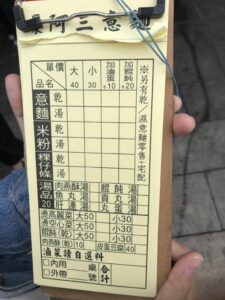 葉阿三意麵
單價 大 小 加滷蛋 加餛飩
品名 40 30 +10 +20
意麵 乾
湯
米粉 乾
湯
粿仔條 乾
湯
※另有乾/濕意麵零售+宅配
湯品 20
肉燕酥湯 餛飩湯
魚丸湯 貢丸湯
肝連湯 丸蛋湯
燙高麗菜 大50 小30
燙空心菜 大50 小30
餛飩(乾) 大50 小30
肉燕酥(乾)10 皮蛋豆腐40
滷菜請自選料
□內用 桌 合計
□外帶 號